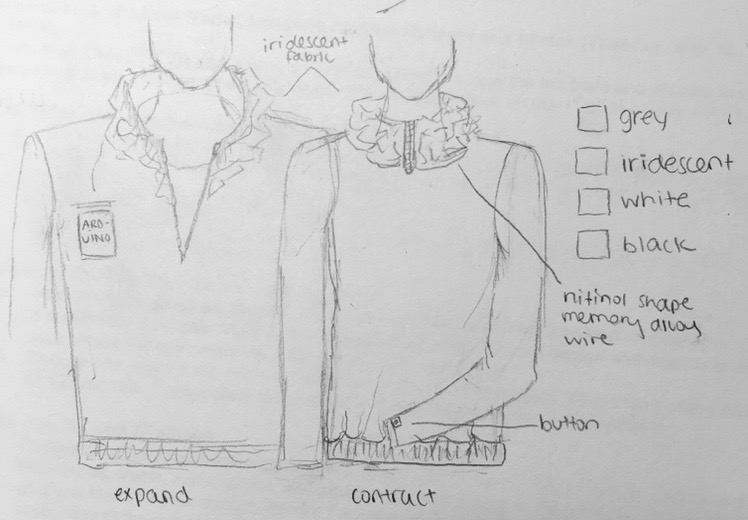 iridescent
fabric
ARD-
UINO
grey
iridescent
white
black
nitinol shape
memory alloy
wire
button
expand
contract